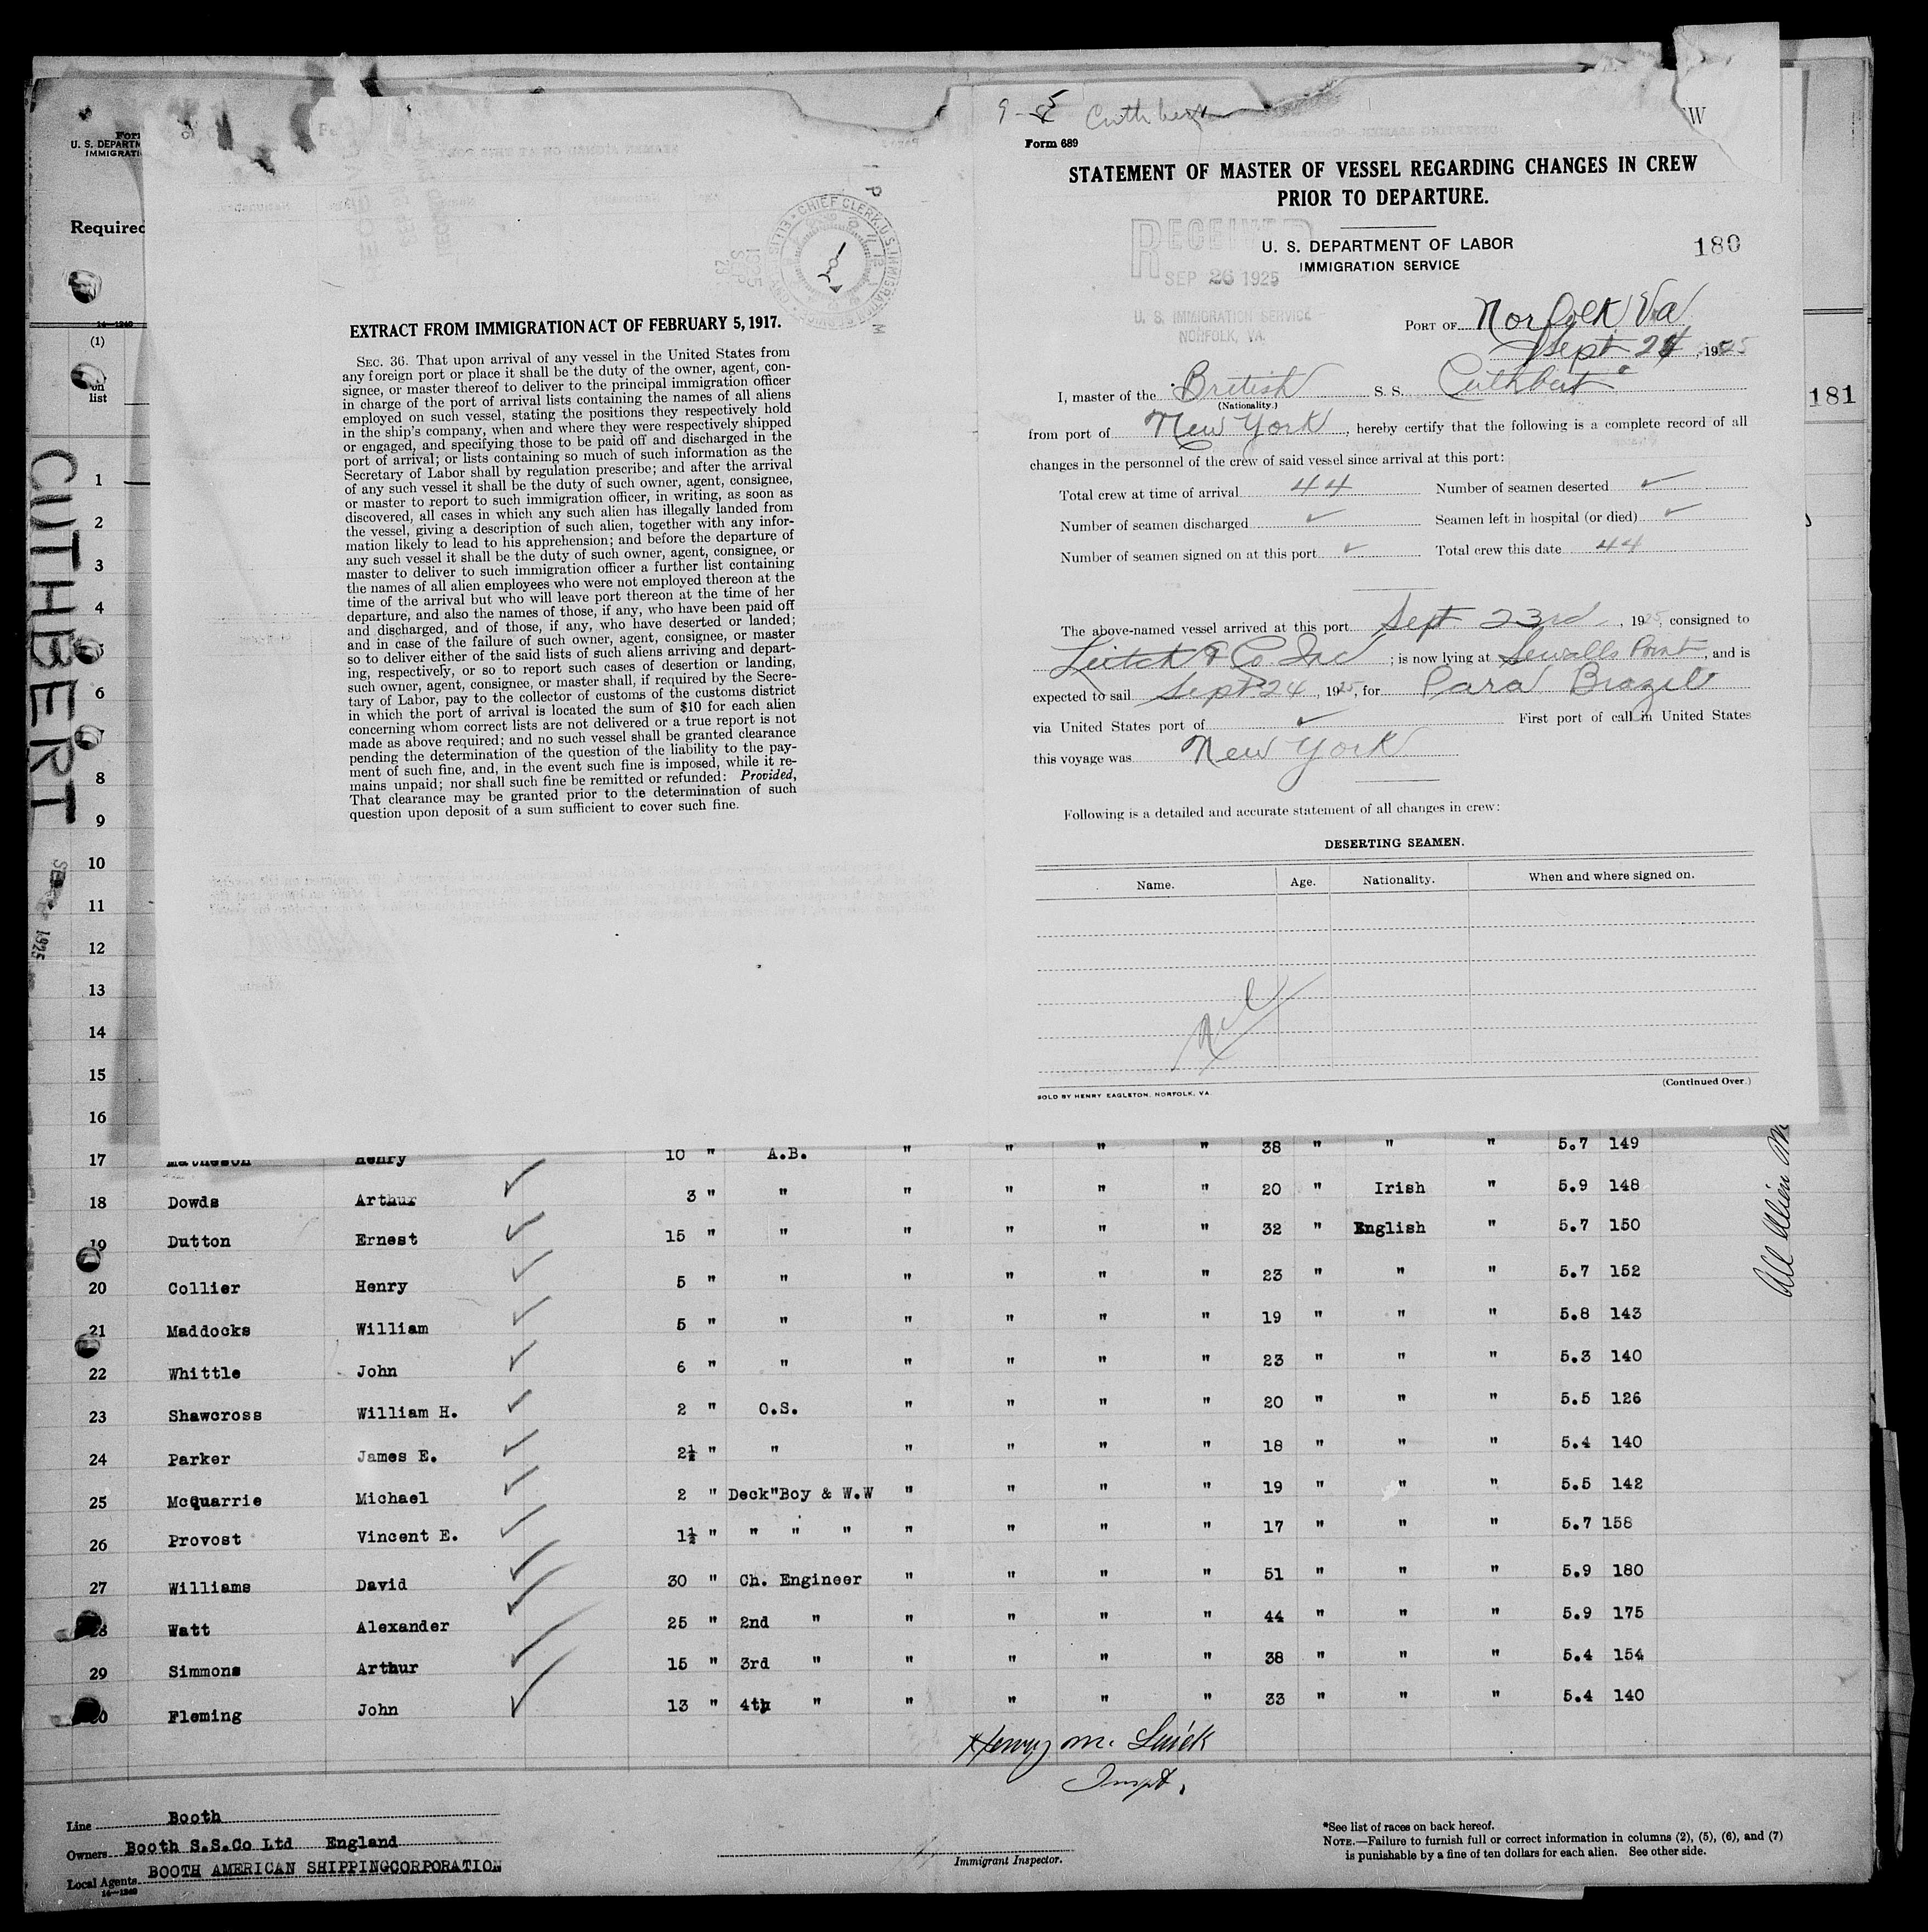 9-5 Cuthbert
W
Form 689
STATEMENT OF MASTER OF VESSEL REGARDING CHANGES IN CREW
PRIOR TO DEPARTURE.
U. S. DEPARTMENT OF LABOR
IMMIGRATION SERVICE
180
RECEIVED
SEP 26 1925
U. S. IMMIGRATION SERVICE
NORFOLK, VA.
PORT OF Norfolk Va
Sept 24, 1925
I, master of the British S. S. Cuthbert
(Nationality.)
from port of New York, hereby certify that the following is a complete record of all
changes in the personnel of the crew of said vessel since arrival at this port:
Total crew at time of arrival 44 Number of seamen deserted ✓
Number of seamen discharged ✓ Seamen left in hospital (or died) ✓
Number of seamen signed on at this port ✓ Total crew this date 44
The above-named vessel arrived at this port Sept. 23rd, 1925, consigned to
Leitch & Co. Inc; is now lying at Sewalls Point, and is
expected to sail Sept 24, 1925, for Para Brazil
via United States port of ✓ First port of call in United States
this voyage was New York
Following is a detailed and accurate statement of all changes in crew:
DESERTING SEAMEN.
Name. Age. Nationality. When and where signed on.
Nil
SOLD BY HENRY EAGLETON, NORFOLK, VA.
(Continued Over.)
EXTRACT FROM IMMIGRATION ACT OF FEBRUARY 5, 1917.
SEC. 36. That upon arrival of any vessel in the United States from
any foreign port or place it shall be the duty of the owner, agent, con-
signee, or master thereof to deliver to the principal immigration officer
in charge of the port of arrival lists containing the names of all aliens
employed on such vessel, stating the positions they respectively hold
in the ship's company, when and where they were respectively shipped
or engaged, and specifying those to be paid off and discharged in the
port of arrival; or lists containing so much of such information as the
Secretary of Labor shall by regulation prescribe; and after the arrival
of any such vessel it shall be the duty of such owner, agent, consignee,
or master to report to such immigration officer, in writing, as soon as
discovered, all cases in which any such alien has illegally landed from
the vessel, giving a description of such alien, together with any infor-
mation likely to lead to his apprehension; and before the departure of
any such vessel it shall be the duty of such owner, agent, consignee, or
master to deliver to such immigration officer a further list containing
the names of all alien employees who were not employed thereon at the
time of the arrival but who will leave port thereon at the time of her
departure, and also the names of those, if any, who have been paid off
and discharged, and of those, if any, who have deserted or landed;
and in case of the failure of such owner, agent, consignee, or master
so to deliver either of the said lists of such aliens arriving and depart-
ing, respectively, or so to report such cases of desertion or landing,
such owner, agent, consignee, or master shall, if required by the Secre-
tary of Labor, pay to the collector of customs of the customs district
in which the port of arrival is located the sum of $10 for each alien
concerning whom correct lists are not delivered or a true report is not
made as above required; and no such vessel shall be granted clearance
pending the determination of the question of the liability to the pay-
ment of such fine, and, in the event such fine is imposed, while it re-
mains unpaid; nor shall such fine be remitted or refunded: Provided,
That clearance may be granted prior to the determination of such
question upon deposit of a sum sufficient to cover such fine.
U. S. DEPARTM
IMMIGRATI
Required
14—1240
(1)
on
list
181
CUTHBERT
1925
1
2
3
4
6
7
8
9
10
11
12
13
14
15
16
17 Matheson Henry 10 " A.B. " " " " 38 " " " 5.7 149
18 Dowds Arthur 3 " " " " " " 20 " Irish " 5.9 148
19 Dutton Ernest 15 " " " " " " 32 " English " 5.7 150
20 Collier Henry 5 " " " " " " 23 " " " 5.7 152
21 Maddocks William 5 " " " " " " 19 " " " 5.8 143
22 Whittle John 6 " " " " " " 23 " " " 5.3 140
23 Shawcross William H. 2 " O.S. " " " " 20 " " " 5.5 126
24 Parker James E. 2½ " " " " " " 18 " " " 5.4 140
25 McQuarrie Michael 2 " Deck"Boy & W.W " " " " 19 " " " 5.5 142
26 Provost Vincent E. 1½ " " " " " " " " 17 " " " 5.7 158
27 Williams David 30 " Ch. Engineer " " " " 51 " " " 5.9 180
28 Watt Alexander 25 " 2nd " " " " " 44 " " " 5.9 175
29 Simmons Arthur 15 " 3rd " " " " " 38 " " " 5.4 154
30 Fleming John 13 " 4th " " " " " 33 " " " 5.4 140
All Alien
Henry M.
Inspt.
Line Booth
Owners Booth S.S.Co Ltd England
Local Agents BOOTH AMERICAN SHIPPINGCORPORATION
14—1240
Immigrant Inspector.
*See list of races on back hereof.
NOTE.—Failure to furnish full or correct information in columns (2), (5), (6), and (7)
is punishable by a fine of ten dollars for each alien. See other side.